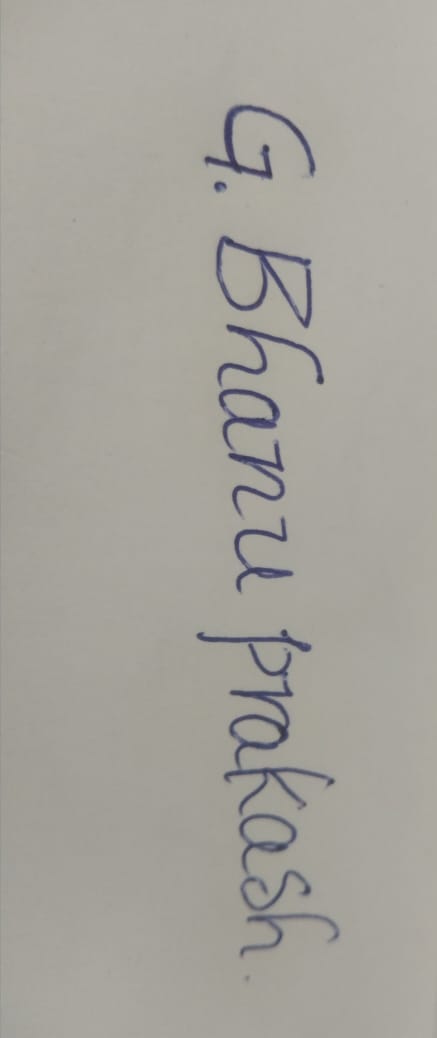 G. Bhanu prakash.